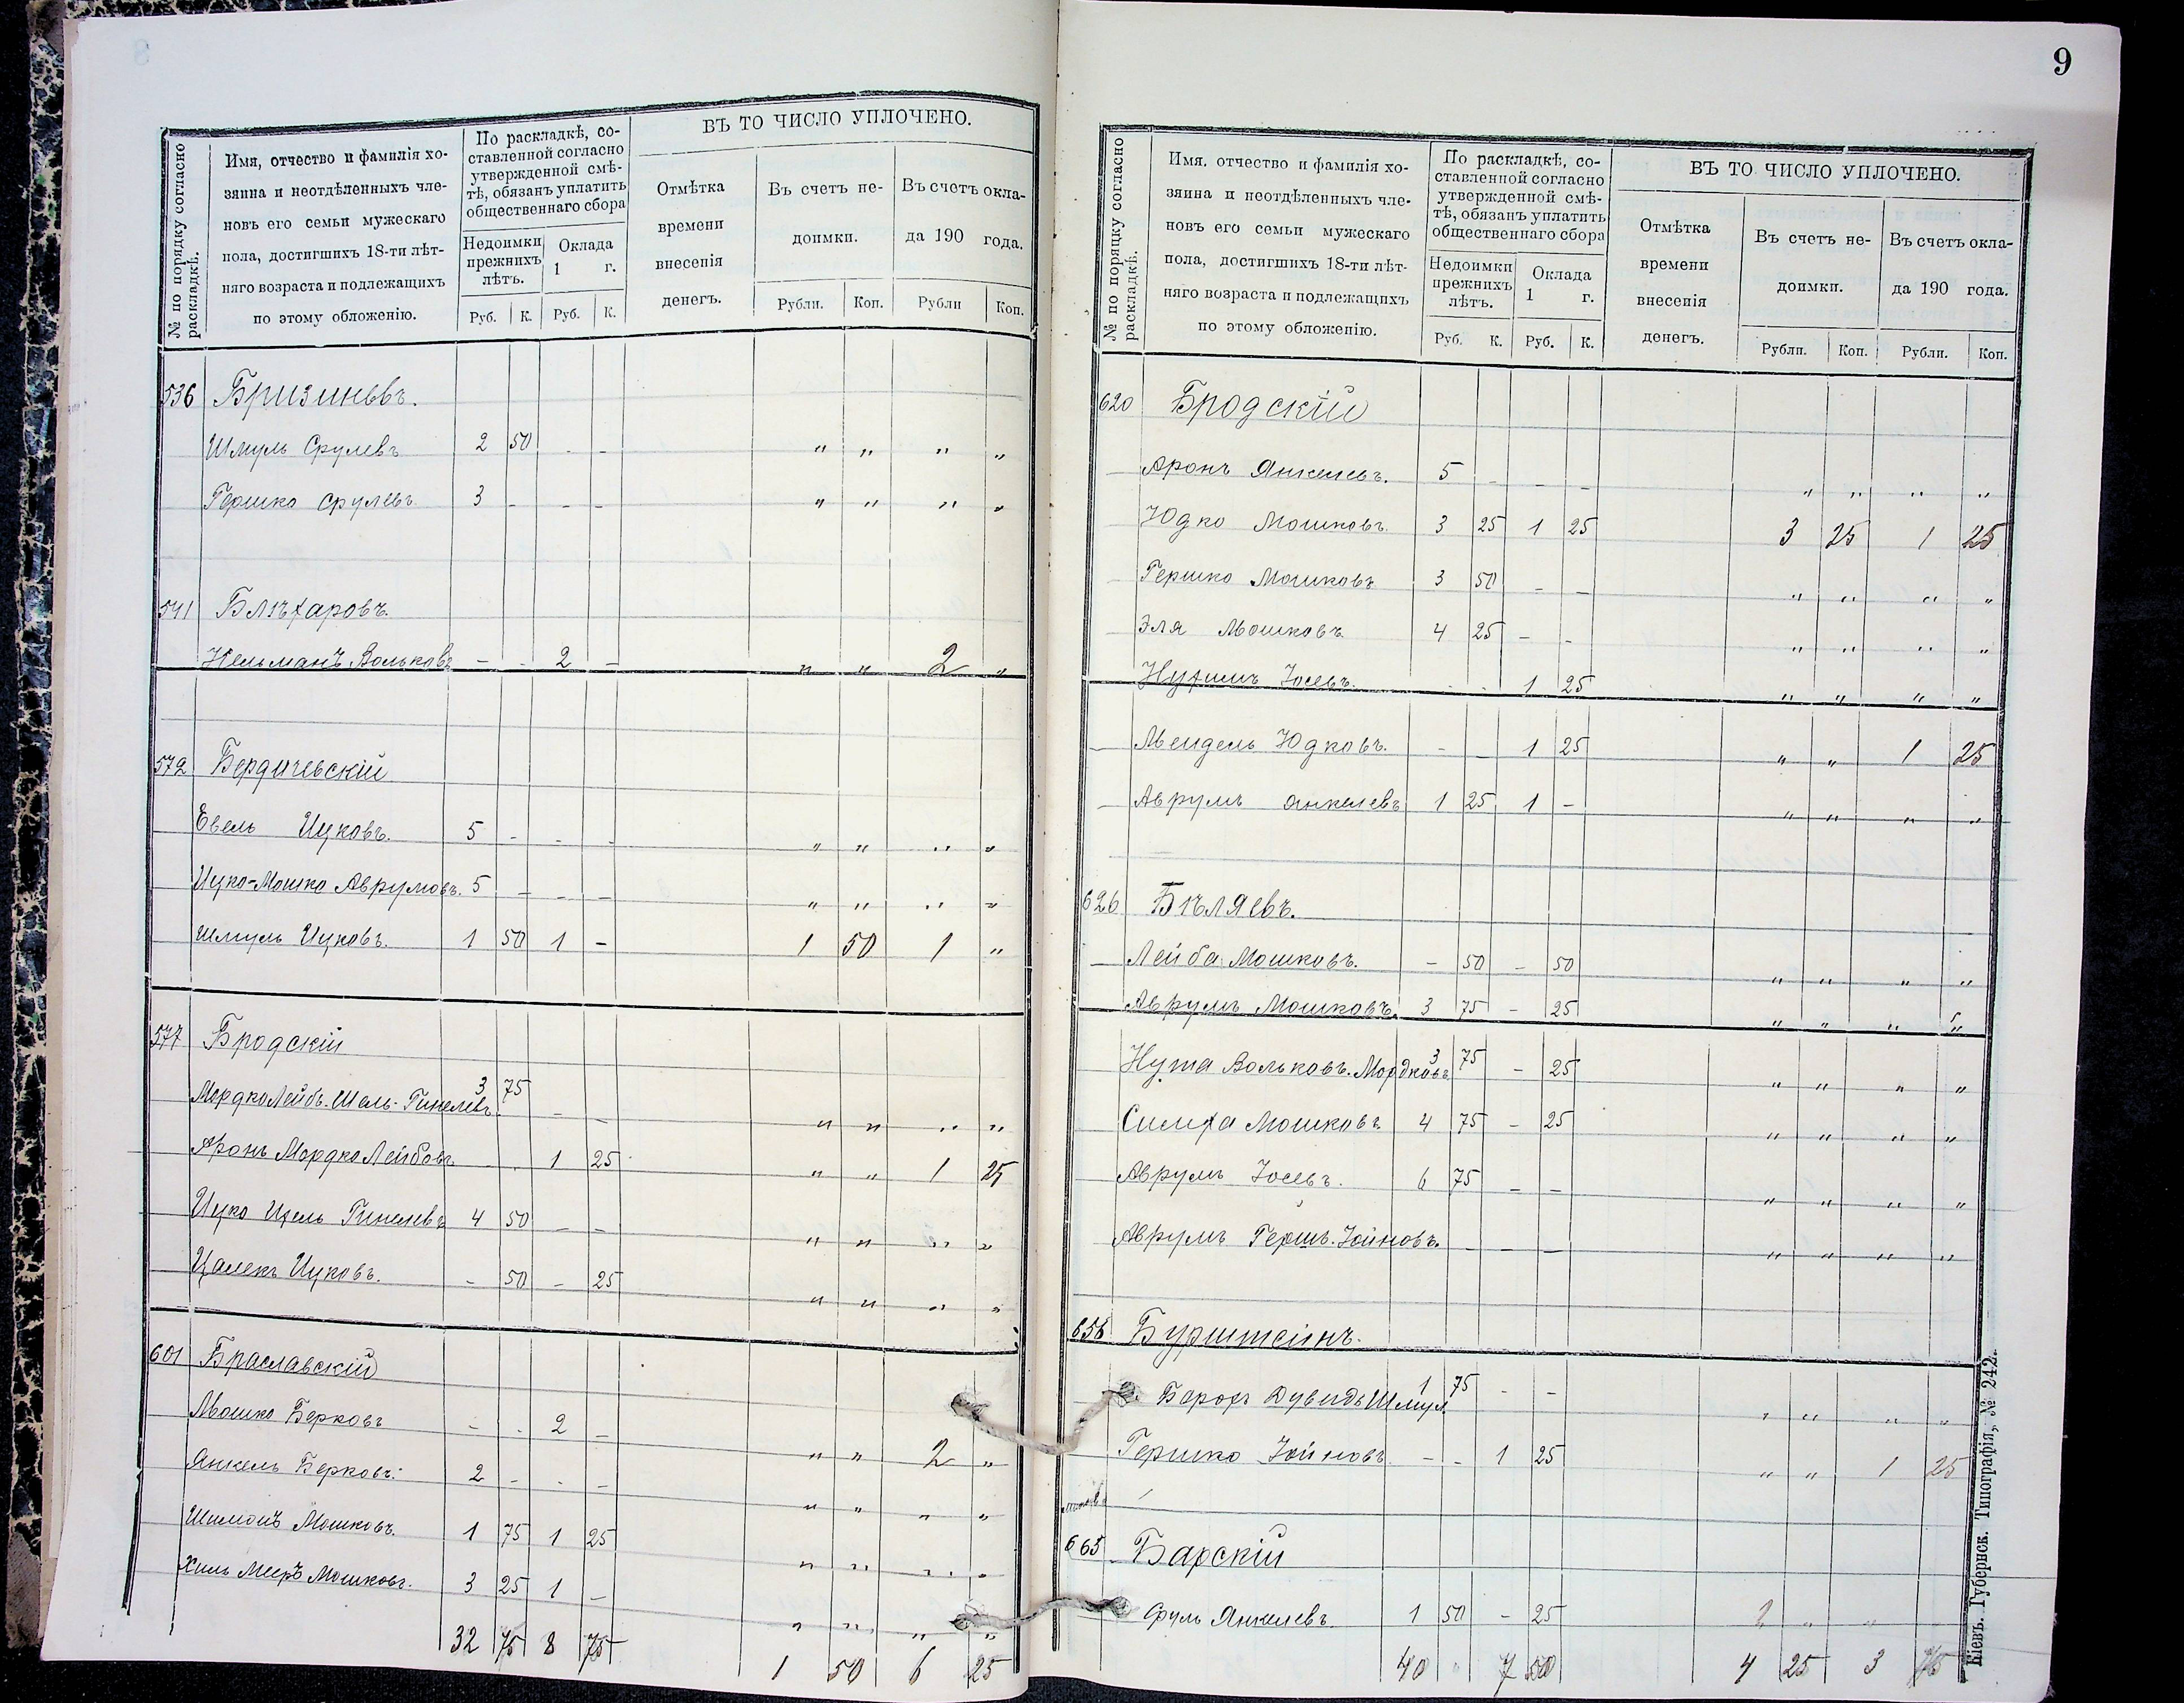 № по порядку согласно раскладкѣ.
Имя, отчество и фамилія хо-
зяина и неотдѣленныхъ чле-
новъ его семьи мужескаго
пола, достигшихъ 18-ти лѣт-
няго возраста и подлежащихъ
по этому обложенію.
По раскладкѣ, со-
ставленной согласно
утвержденной смѣ-
тѣ, обязанъ уплатить
общественнаго сбора
Недоимки прежнихъ лѣтъ.
Оклада 1 г.
Руб. К. Руб. К.
ВЪ ТО ЧИСЛО УПЛОЧЕНО.
Отмѣтка времени внесенія денегъ.
Въ счетъ не-
доимки.
Въ счетъ окла-
да 190 года.
Рубли. Коп. Рубли Коп.
536 Бризиньвъ.
Шмуль Срулевъ 2 50 - - " " " "
Гершко Срулевъ 3 - - - " " " "
541 Бляхаровъ.
Кельманъ Вольковъ - - 2 - " " 2 "
572 Бердичевскій
Евель Ицковъ. 5 - - - " " " "
Ицко-Мошко Аврумовъ. 5 - - - " " " "
Шмуль Ицковъ. 1 50 1 - 1 50 1 "
577 Бродскій
Мордко Лейбъ. Шель-Гинелевъ 3 75 - - " " " "
Аронъ Мордко Лейбовъ - - 1 25 " " 1 25
Ицко Цель Гинелевъ 4 50 - - " " " "
Цалекъ Ицковъ. - 50 - 25 " " " "
601 Браславскій
Мошко Берковъ - - 2 - " " 2 "
Янкель Берковъ. 2 - - - " " " "
Шимонъ Мошковъ. 1 75 1 25 " " " "
Хиль Мееръ Мошковъ. 3 25 1 - " " " "
32 75 8 75 1 50 6 25
9
№ по порядку согласно раскладкѣ.
Имя, отчество и фамилія хо-
зяина и неотдѣленныхъ чле-
новъ его семьи мужескаго
пола, достигшихъ 18-ти лѣт-
няго возраста и подлежащихъ
по этому обложенію.
По раскладкѣ, со-
ставленной согласно
утвержденной смѣ-
тѣ, обязанъ уплатить
общественнаго сбора
Недоимки прежнихъ лѣтъ.
Оклада 1 г.
Руб. К. Руб. К.
ВЪ ТО ЧИСЛО УПЛОЧЕНО.
Отмѣтка времени внесенія денегъ.
Въ счетъ не-
доимки.
Въ счетъ окла-
да 190 года.
Рубли. Коп. Рубли. Коп.
620 Бродскій
Аронъ Янкелевъ. 5 - - - " " " "
Юдко Мошковъ. 3 25 1 25 3 25 1 25
Гершко Мошковъ 3 50 - - " " " "
Эля Мошковъ 4 25 - - " " " "
Нухимъ Іосевъ. - - 1 25 " " " "
Мендель Юдковъ. - - 1 25 " " 1 25
Аврумъ Янкелевъ 1 25 1 - " " " "
626 Бѣляевъ.
Лейба Мошковъ. - 50 - 50 " " " "
Аврумъ Мошковъ. 3 75 - 25 " " " "
Нута Вольковъ. Мордковъ 3 75 - 25 " " " "
Симха Мошковъ 4 75 - 25 " " " "
Аврумъ Іосевъ. 6 75 - - " " " "
Аврумъ Гершъ. Іойновъ. - - - " " " "
656 Бурштейнъ.
Борохъ Дувидъ Шмул. 1 75 - - " " " "
Гершко Іойновъ - - 1 25 " " 1 25
665 Барскій
Сруль Янкелевъ. 1 50 - 25 1 " "
40 " 7 50 4 25 3 75
Кіевъ. Губернск. Типографія, № 242.